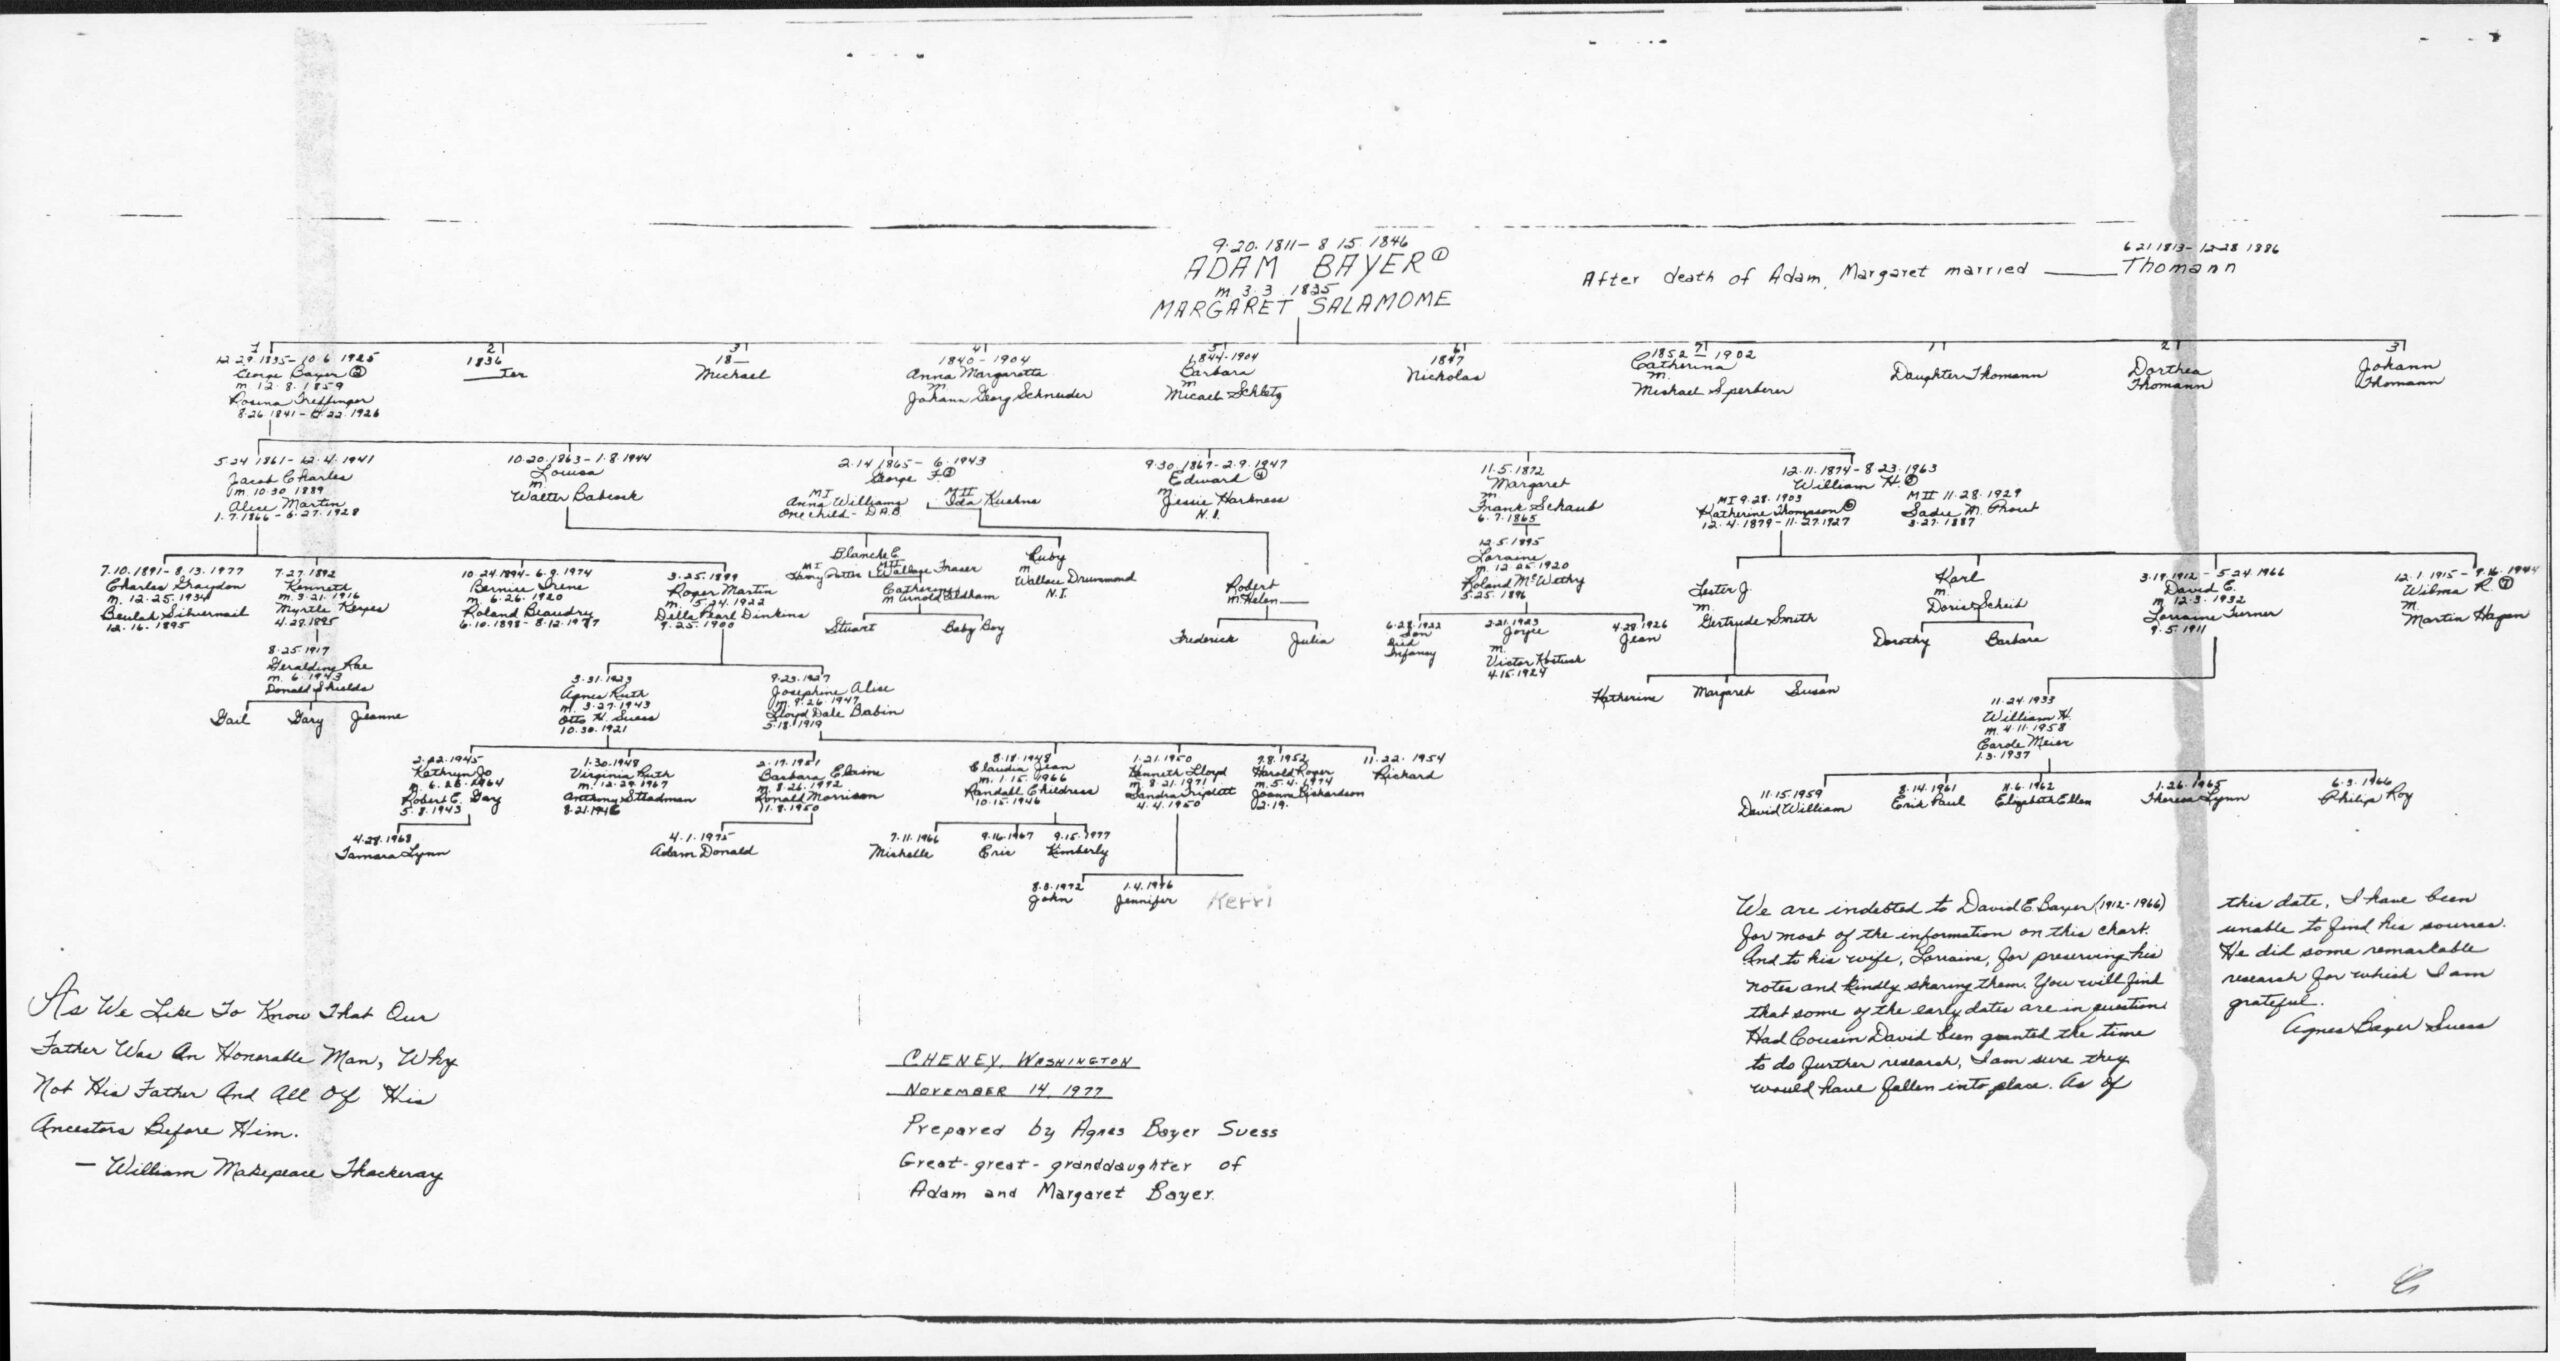 9·20·1811 – 8·15·1846
ADAM BAYER ①
m 3·3·1835
MARGARET SALAMOME
After death of Adam, Margaret married ______ Thomann
6·21·1813 – 12·28·1886
1
12·29·1835 – 10·6·1925
George Bayer ②
m 12·8·1859
Rosina Treffinger
8·26·1841 – 22·1926
2
1836
___ter
3
18__
Michael
4
1840 – 1904
Anna Margaretta
m.
Johann Georg Schneider
5
1844–1904
Barbara
m
Micael Schletz
6
1847
Nicholas
7
1852 – 1902
Catherina
m.
Michael Sperberer
1
Daughter Thomann
2
Dorthea
Thomann
3
Johann
Thomann
5·24·1861 – 12·4·1941
Jacob Charles
m. 10·30·1889
Alice Martin
1·7·1866 – 6·27·1928
10·20·1863 – 1·8·1944
Louisa
m
Walter Babcock
2·14·1865 – 6·1943
George F. ③
MI
Anna Williams
One child – D.A.B.
MII
Ida Kuehne
9·30·1867 – 2·9·1947
Edward ④
m
Jessie Harkness
N.I.
11·5·1872
Margaret
m.
Frank Schaub
6·7·1865
12·11·1874 – 8·23·1963
William H.
MI 9·28·1903
Katherine Thompson
12·4·1879 – 11·27·1927
MII 11·28·1929
Sadie M. Prout
3·27·1887
7·10·1891 – 8·13·1977
Charles Graydon
m. 12·25·1934
Beulah Silvernail
12·16·1895
7·27·1892
Kenneth
m. 3·21·1916
Myrtle Keyes
4·29·1895
10·24·1894 – 6·9·1974
Bernice Irene
m 6·26·1920
Roland Beaudry
6·10·1898 – 8·12·1977
3·25·1899
Roger Martin
m. 5·24·1922
Della Pearl Dinkins
9·25·1900
Blanche E.
MI
MII
Wallace Fraser
Catherine
m Arnold Oldham
Stuart
Baby Boy
Ruby
m
Wallace Drummond
N.I.
Robert
m Helen ____
Frederick
Julia
12·5·1895
Loraine
m. 12·25·1920
Roland McWethy
5·25·1896
6·28·1922
Son
Died
Infancy
2·21·1923
Joyce
m.
Victor Kostuck
4·15·1924
4·28·1926
Jean
Lester J.
m.
Gertrude Smith
Katherine
Margaret
Susan
Karl
m.
Doris Scheid
Dorothy
Barbara
3·19·1912 – 5·24·1966
David E.
m 12·3·1932
Lorraine Turner
9·5·1911
12·1·1915 – 9·16·1944
Wilma R. ⑦
m.
Martin Hagen
8·25·1917
Geraldine Rae
m. 6·1943
Donald Shields
Gail
Gary
Jeanne
3·31·1923
Agnes Ruth
m. 3·27·1943
Otto H. Suess
10·30·1921
9·23·1927
Josephine Alice
m. 9·26·1947
Lloyd Dale Babin
5·18·1919
11·24·1933
William H.
m. 4·11·1958
Carole Meier
1·3·1937
2·22·1945
Kathryn Jo
m. 6·26·1964
Robert E. Gary
5·8·1943
1·30·1948
Virginia Ruth
m. 12·29·1967
Anthony Steadman
8·21·1946
2·19·1951
Barbara Elaine
m 8·26·1972
Ronald Morrison
11·8·1950
8·18·1948
Claudia Jean
m. 1·15·1966
Randall Childress
10·15·1946
1·21·1950
Kenneth Lloyd
m 8·21·1971
Sandra Triplett
4·4·1950
7·8·1952
Harold Roger
m. 5·4·1974
Joanna Richardson
12·19·
11·22·1954
Richard
11·15·1959
David William
8·14·1961
Erik Paul
11·6·1962
Elizabeth Ellen
1·26·1965
Theresa Lynn
6·3·1966
Philip Roy
4·28·1968
Tamara Lynn
4·1·1975
Adam Donald
7·11·1966
Michelle
9·16·1967
Eric
9·15·1977
Kimberly
8·8·1972
John
1·4·1976
Jennifer
Kerri
As We Like To Know That Our
Father Was An Honorable Man, Why
Not His Father And All Of His
Ancestors Before Him.
— William Makepeace Thackeray
CHENEY, WASHINGTON
NOVEMBER 14, 1977
Prepared by Agnes Bayer Suess
Great-great-granddaughter of
Adam and Margaret Bayer.
We are indebted to David E. Bayer (1912–1966)
for most of the information on this chart.
And to his wife, Lorraine, for preserving his
notes and kindly sharing them. You will find
that some of the early dates are in question
Had Cousin David been granted the time
to do further research, I am sure they
would have fallen into place. As of
this date, I have been
unable to find his sources.
He did some remarkable
research for which I am
grateful.
Agnes Bayer Suess